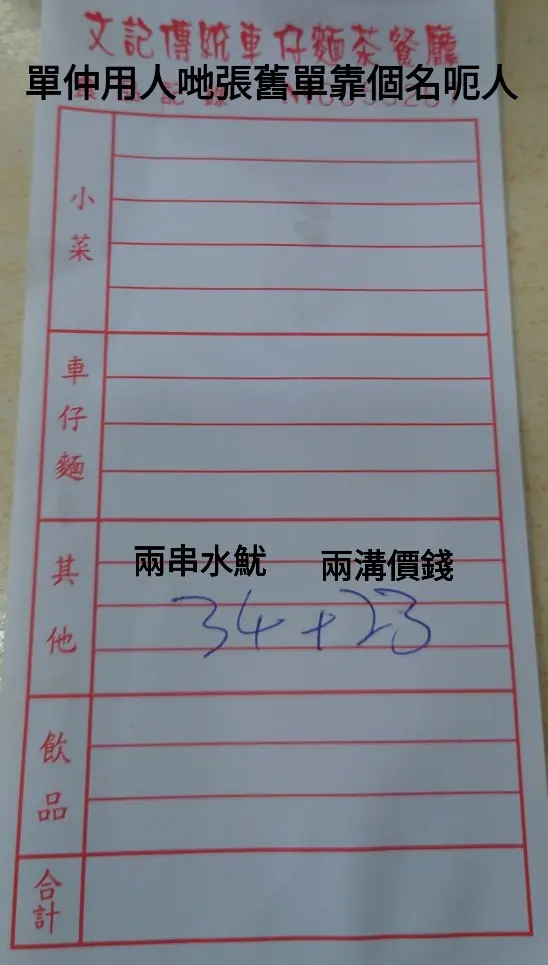 文記傳統車仔麵茶餐廳
單仲用人哋張舊單靠個名呃人
小菜
車仔麵
其他
兩串水魷 兩溝價錢
34 + 23
飲品
合計